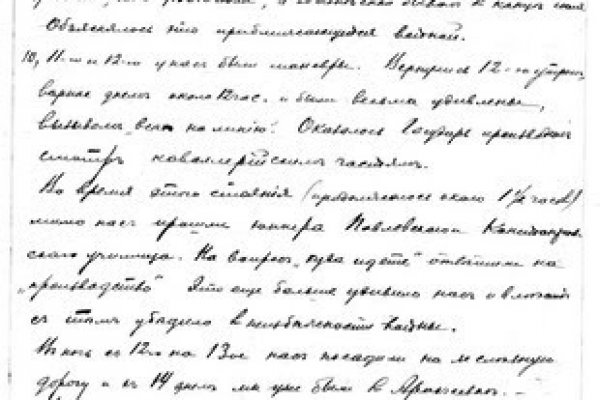 Объяснялось это приближающейся войной.
10, 11-го и 12-го у нас были маневры. Вернулись 12-го утром,
вернее днем около 12 час. и были весьма удивлены,
вызовом „всем на линию“. Оказалось Государь производит
смотр кавалерийским частям.
Во время этого стояния (продолжалось около 1½ часов)
мимо нас прошли юнкера Павловского
ского училища. На вопрос „куда идете“ отвечали на
„производство“ Это еще больше удивило нас и
с тем убедило в неизбежности войны.
В ночь с 12го на 13ое нас посадили на железную
дорогу и в 14 днем мы уже были в